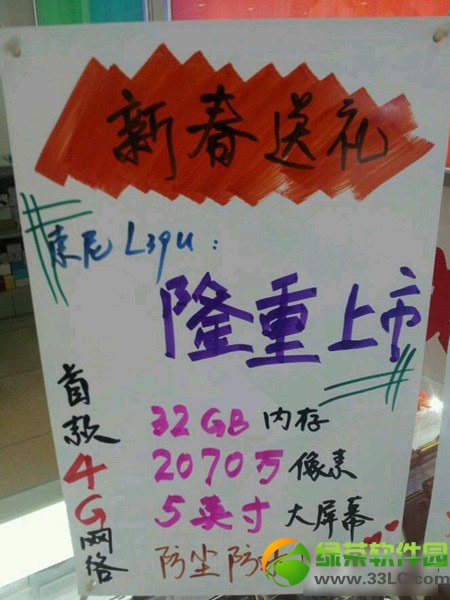 新春送礼
索尼L39u:
隆重上市
首款4G网络
32GB内存
2070万像素
5英寸大屏幕
防尘防
绿茶软件园
www.33LC.com